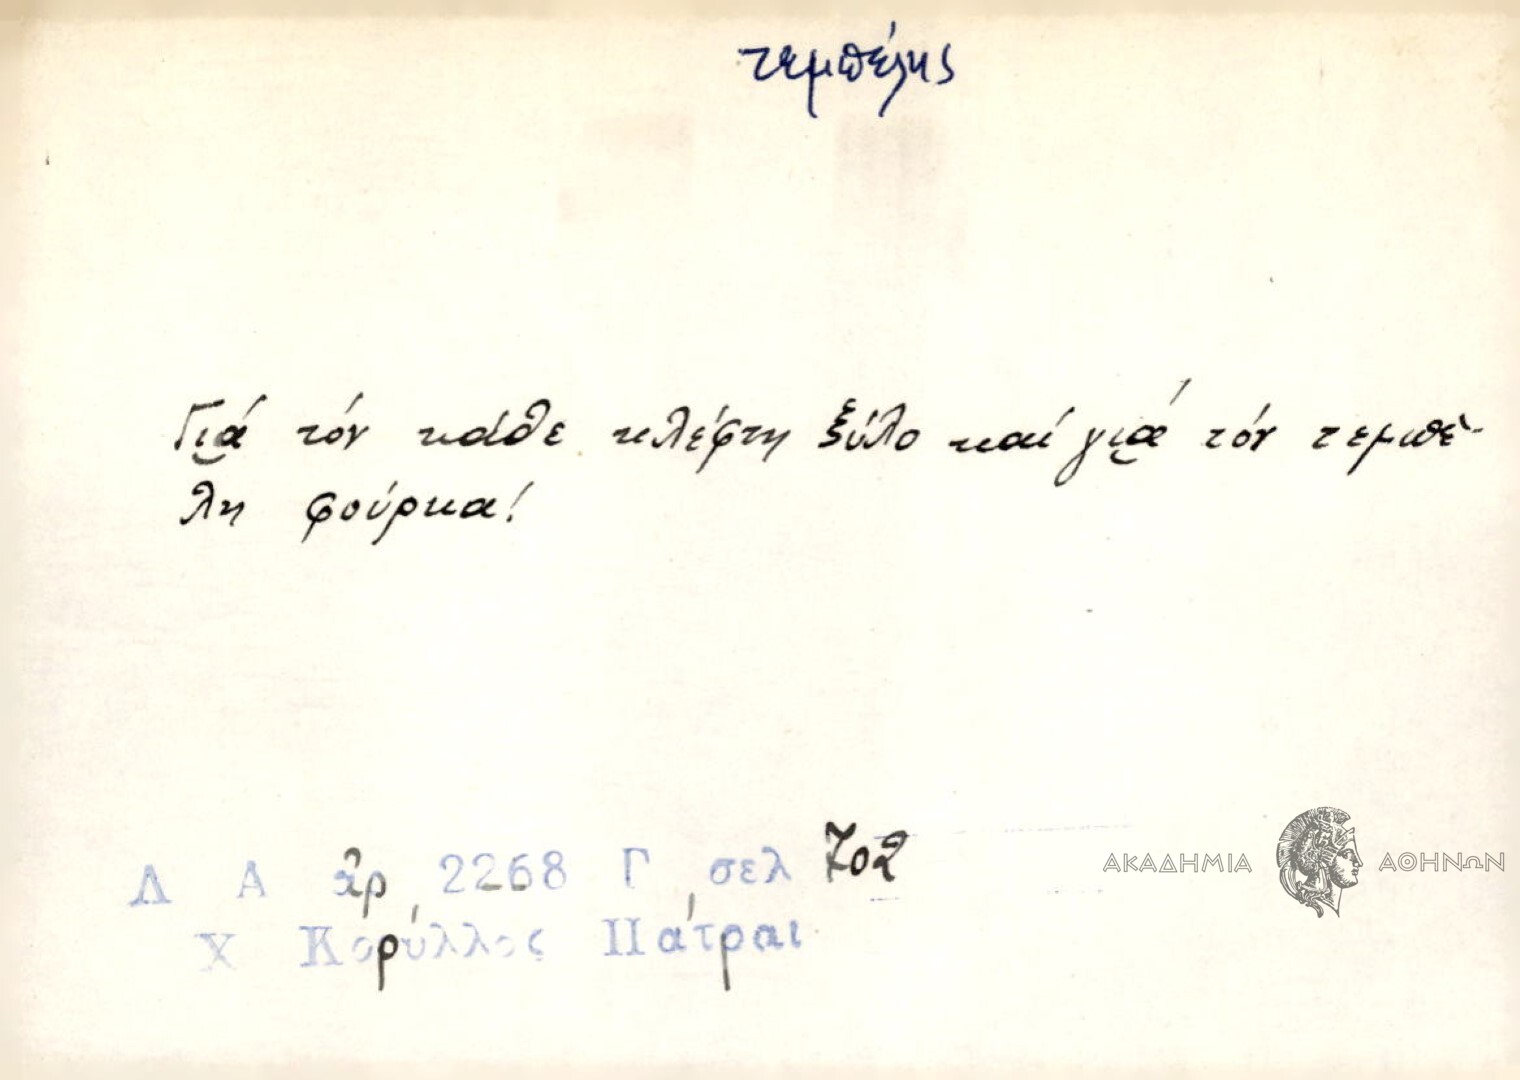 τεμπέλης
Γιά τόν κάθε κλέφτη ξύλο καί γιά τόν τεμπέ-
λη φούρκα!
Λ Α ἀρ 2268 Γ σελ 702
Χ Κορύλλος Πάτραι
ΑΚΑΔΗΜΙΑ ΑΘΗΝΩΝ